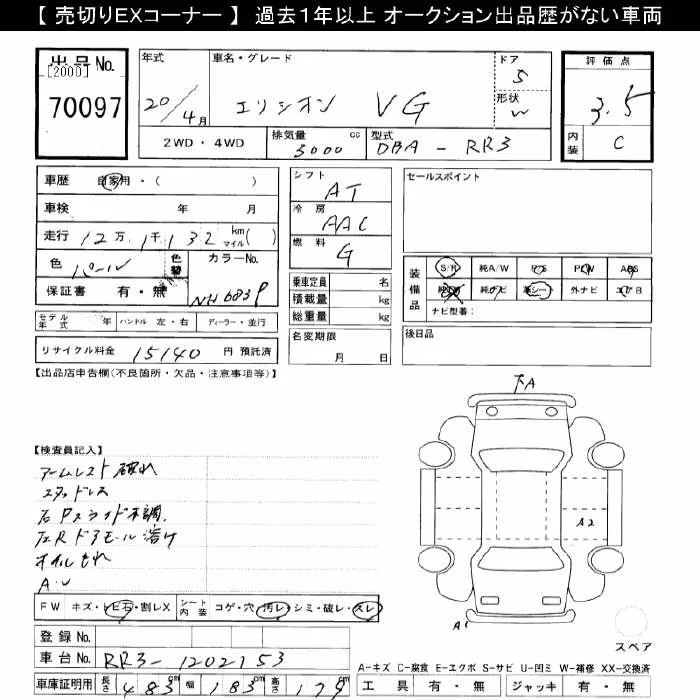 【 売切りEXコーナー 】 過去１年以上 オークション出品歴がない車両
出品No.
[2000]
70097
年式
20/4月
車名・グレード
エリシオン VG
ドア
5
形状
W
評価点
3.5
内装
C
2WD・4WD
排気量
3000 cc
型式
DBA - RR3
車歴 自家用・( )
車検 年 月
走行 12万 1千132 km マイル( )
色 パール
色替
カラーNo.
NH683P
保証書 有・無
モデル年式 年 ハンドル 左・右 ディーラー・並行
リサイクル料金 15140 円 預託済
シフト AT
冷房 AAC
燃料 G
乗車定員 名
積載量 kg
総重量 kg
名変期限
月 日
セールスポイント
装備品
S/R 純A/W P/S P/W ABS
革シート 外ナビ エアB
ナビ型番:
後日品
【出品店申告欄(不良箇所・欠品・注意事項等)】
下A
A2
A1
スペア
【検査員記入】
アームレスト破れ
スタッドレス
右Pスライド不調
左Rドアモール溶け
オイルもれ
A.U
FW キズ・トビ石・割レX シート内装 コゲ・穴・汚レ・シミ・破レ・スレ
登録No.
車台No. RR3-1202153
車庫証明用 長さ 483cm 幅 183cm 高さ 179
A-キズ C-腐食 E-エクボ S-サビ U-凹ミ W-補修 XX-交換済
工具 有・無 ジャッキ 有・無